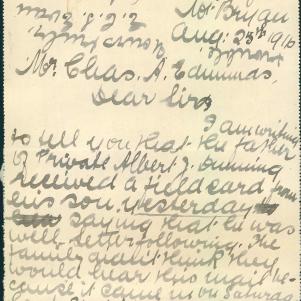 Mt Bryan
Aug: 25th 1916
Mr Chas. A. Edmunds,
Dear Sir,
I am writing
to tell you that the father
of Private Albert J. Dunning
received a field card from
his son, yesterday
saying that he was
well, letter following. The
family didn't think they
would hear this mail be-
cause it came in on Saturday